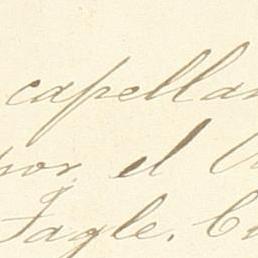 capellan
por el
Tagle. C